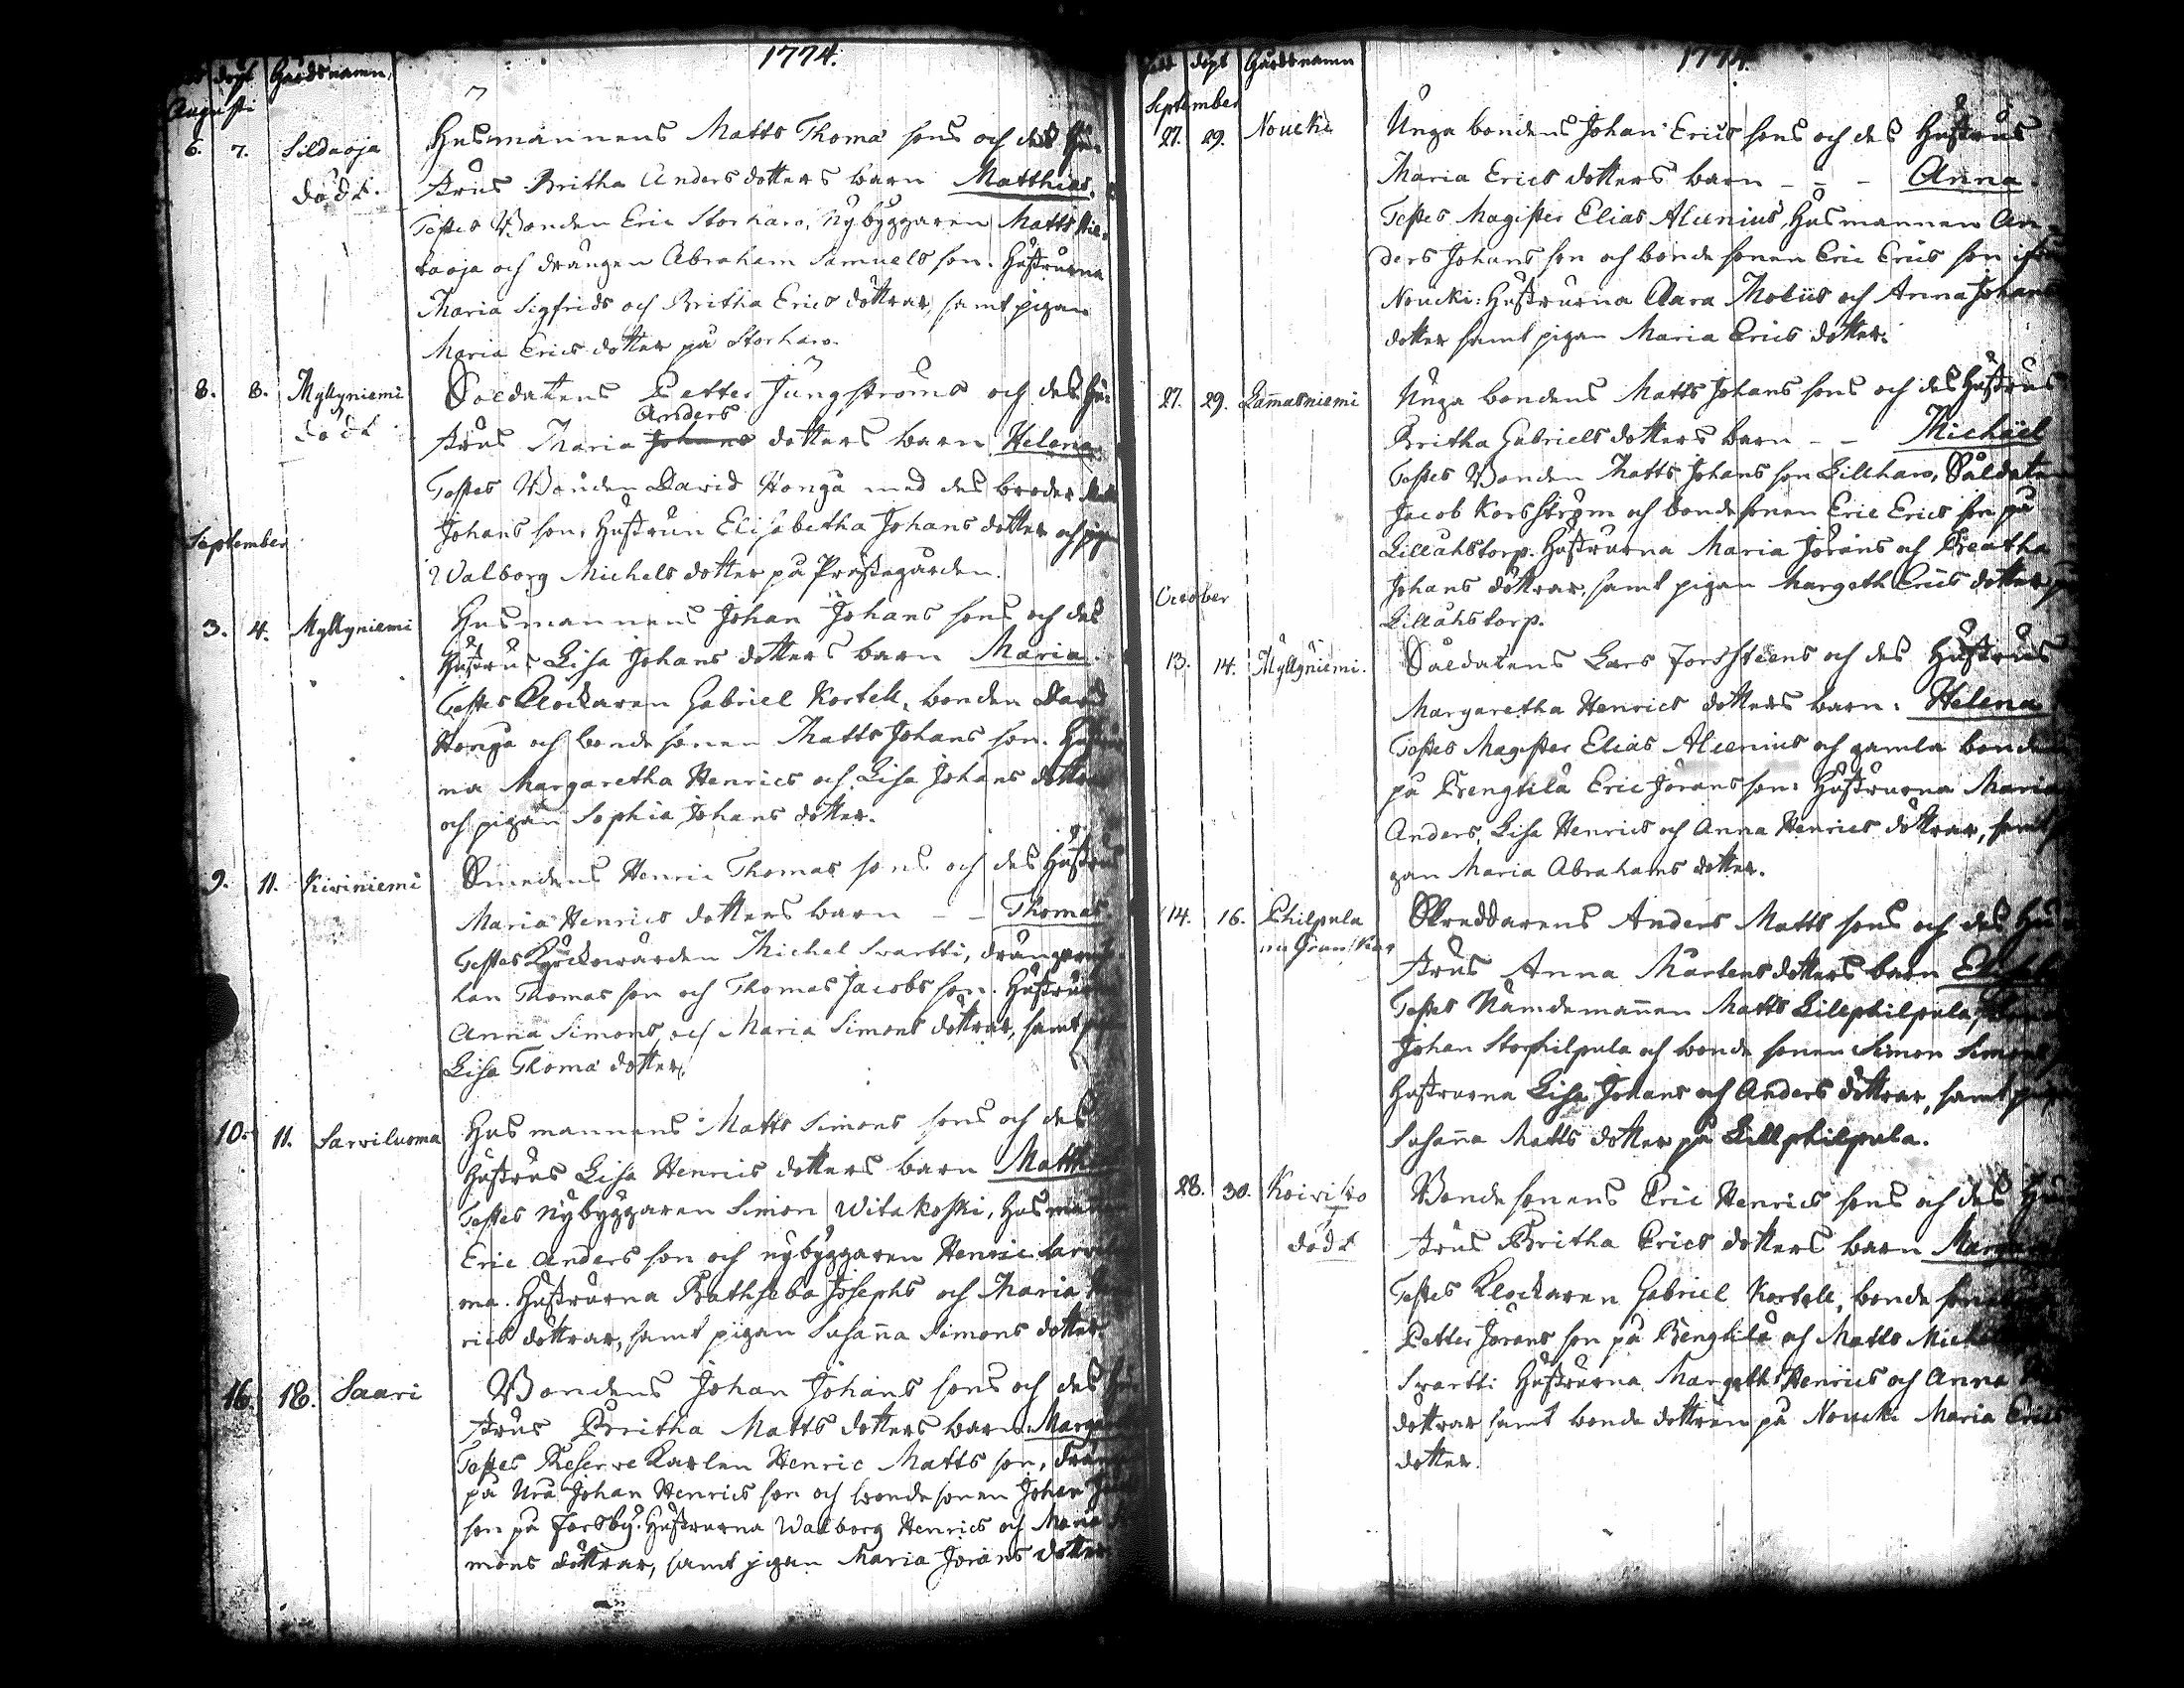 1774.
döpt Gårdsnamn.
Augusti
6. 7. Sildaoja Husmannens Matts Thomæ sons och des Hu-
död t. strus Britha Anders dotters barn Matthias.
Testes Bonden Eric Storharo, Nybyggaren Matts
och drängen Abraham Samuels son. Hustrurna
Maria Sigfrids och Britha Erics döttrar, samt pigan
Maria Erics dotter på Storharo.
8. 8. Myllyniemi Soldatens Petter Ljungströms och des Hu-
Anders
död t strus Maria Johans dotters barn Helena.
Testes Bonden David Honga med des broder
Johans son, Hustrun Elisabetha Johans dotter och pigan
Walborg Michels dotter på Prästegården.
September
3. 4. Myllyniemi Husmannens Johan Johans sons och des
Hustrus Lisa Johans dotters barn Maria.
Testes Klockaren Gabriel Kortell, bonden David
Honga och bonde sonen Matts Johans son. Hustrur
na Margaretha Henrics och Lisa Johans döttrar
och pigan Sophia Johans dotter.
9. 11. Kiviniemi Smedens Henric Thomas sons och des Hustrus
Maria Henrics dotters barn - - Thomas.
Testes Kyrckowärden Michel Svartti, drängarna
han Thomas son och Thomas Jacobs son. Hustrurna
Anna Simons och Maria Simons döttrar, samt
Lisa Thomæ dotter.
10. 11. Sarviluoma Husmannens Matts Simons sons och des
Hustrus Lisa Henrics dotters barn Matthias
Testes Nybyggaren Simon Witakoski, Husmannen
Eric Anders son och nybyggaren Henric Sarvilu
oma. Hustrurna Bathseba Josephs och Maria Hen
rics döttrar, samt pigan Susanna Simons dotter
16. 18. Saari Bondens Johan Johans sons och des Hu
strus Britha Matts dotters barn Marga
Testes Reserve Karlen Henric Matts son, dräng
på Ura Johan Henrics son och bonde sonen Johan
son på Forsby. Hustrurna Walborg Henrics och Maria Si
mons döttrar, samt pigan Maria Jörans dotter
1774.
född döpt Gårdsnamn
September
27. 29. Noucki Unga bondens Johan Erics sons och des Hustrus
Maria Erics dotters barn - - - Anna.
Testes Magister Elias Alcenius, Husmannen An-
ders Johans son och bonde sonen Eric Erics son
Noucki: Hustrurna Clara Moliis och Anna Johans
dotter samt pigan Maria Erics dotter.
27. 29. Lam̄asniemi Unga bondens Matts Johans sons och des Hustrus
Britha Gabriels dotters barn - - Michäel
Testes Bonden Matts Johans son Lillharo, Soldaten
Jacob Korsström och bonde sonen Eric Erics son på
Lillåhstorp. Hustrurna Maria Jörans och Beatha
Johans döttrar, samt pigan Margeth Erics dotter på
Lillåhstorp.
October
13. 14. Myllyniemi. Soldatens Lars Forssteens och des Hustrus
Margaretha Henrics dotters barn: Helena
Testes Magister Elias Alcenius och gamla bonden
på Bengtilä Eric Jörans son: Hustrurna Maria
Anders, Lisa Henrics och Anna Henrics döttrar, samt
gan Maria Abrahams dotter.
14. 16. Philpula Skreddarens Anders Matts sons och des Hu
strus Anna Mårtens dotters barn
Testes Nämdeman̄en Matts Lillphilpula,
Johan Storphilpula och bonde sonen Simon Simons
Hustrurna Lisa Johans och Anders döttrar, samt pigan
Susan̄a Matts dotter på Lillphilpula.
28. 30. Koivisto Bonde sonens Eric Henrics sons och des Hu
död t strus Britha Erics dotters barn
Testes Klockaren Gabriel Kortell, bonde
Petter Jörans son på Bengtilä och Matts
Svartti Hustrurna Margeth Henrics och Anna
döttrar samt bonde dottren på Noucki Maria Erics
dotter.